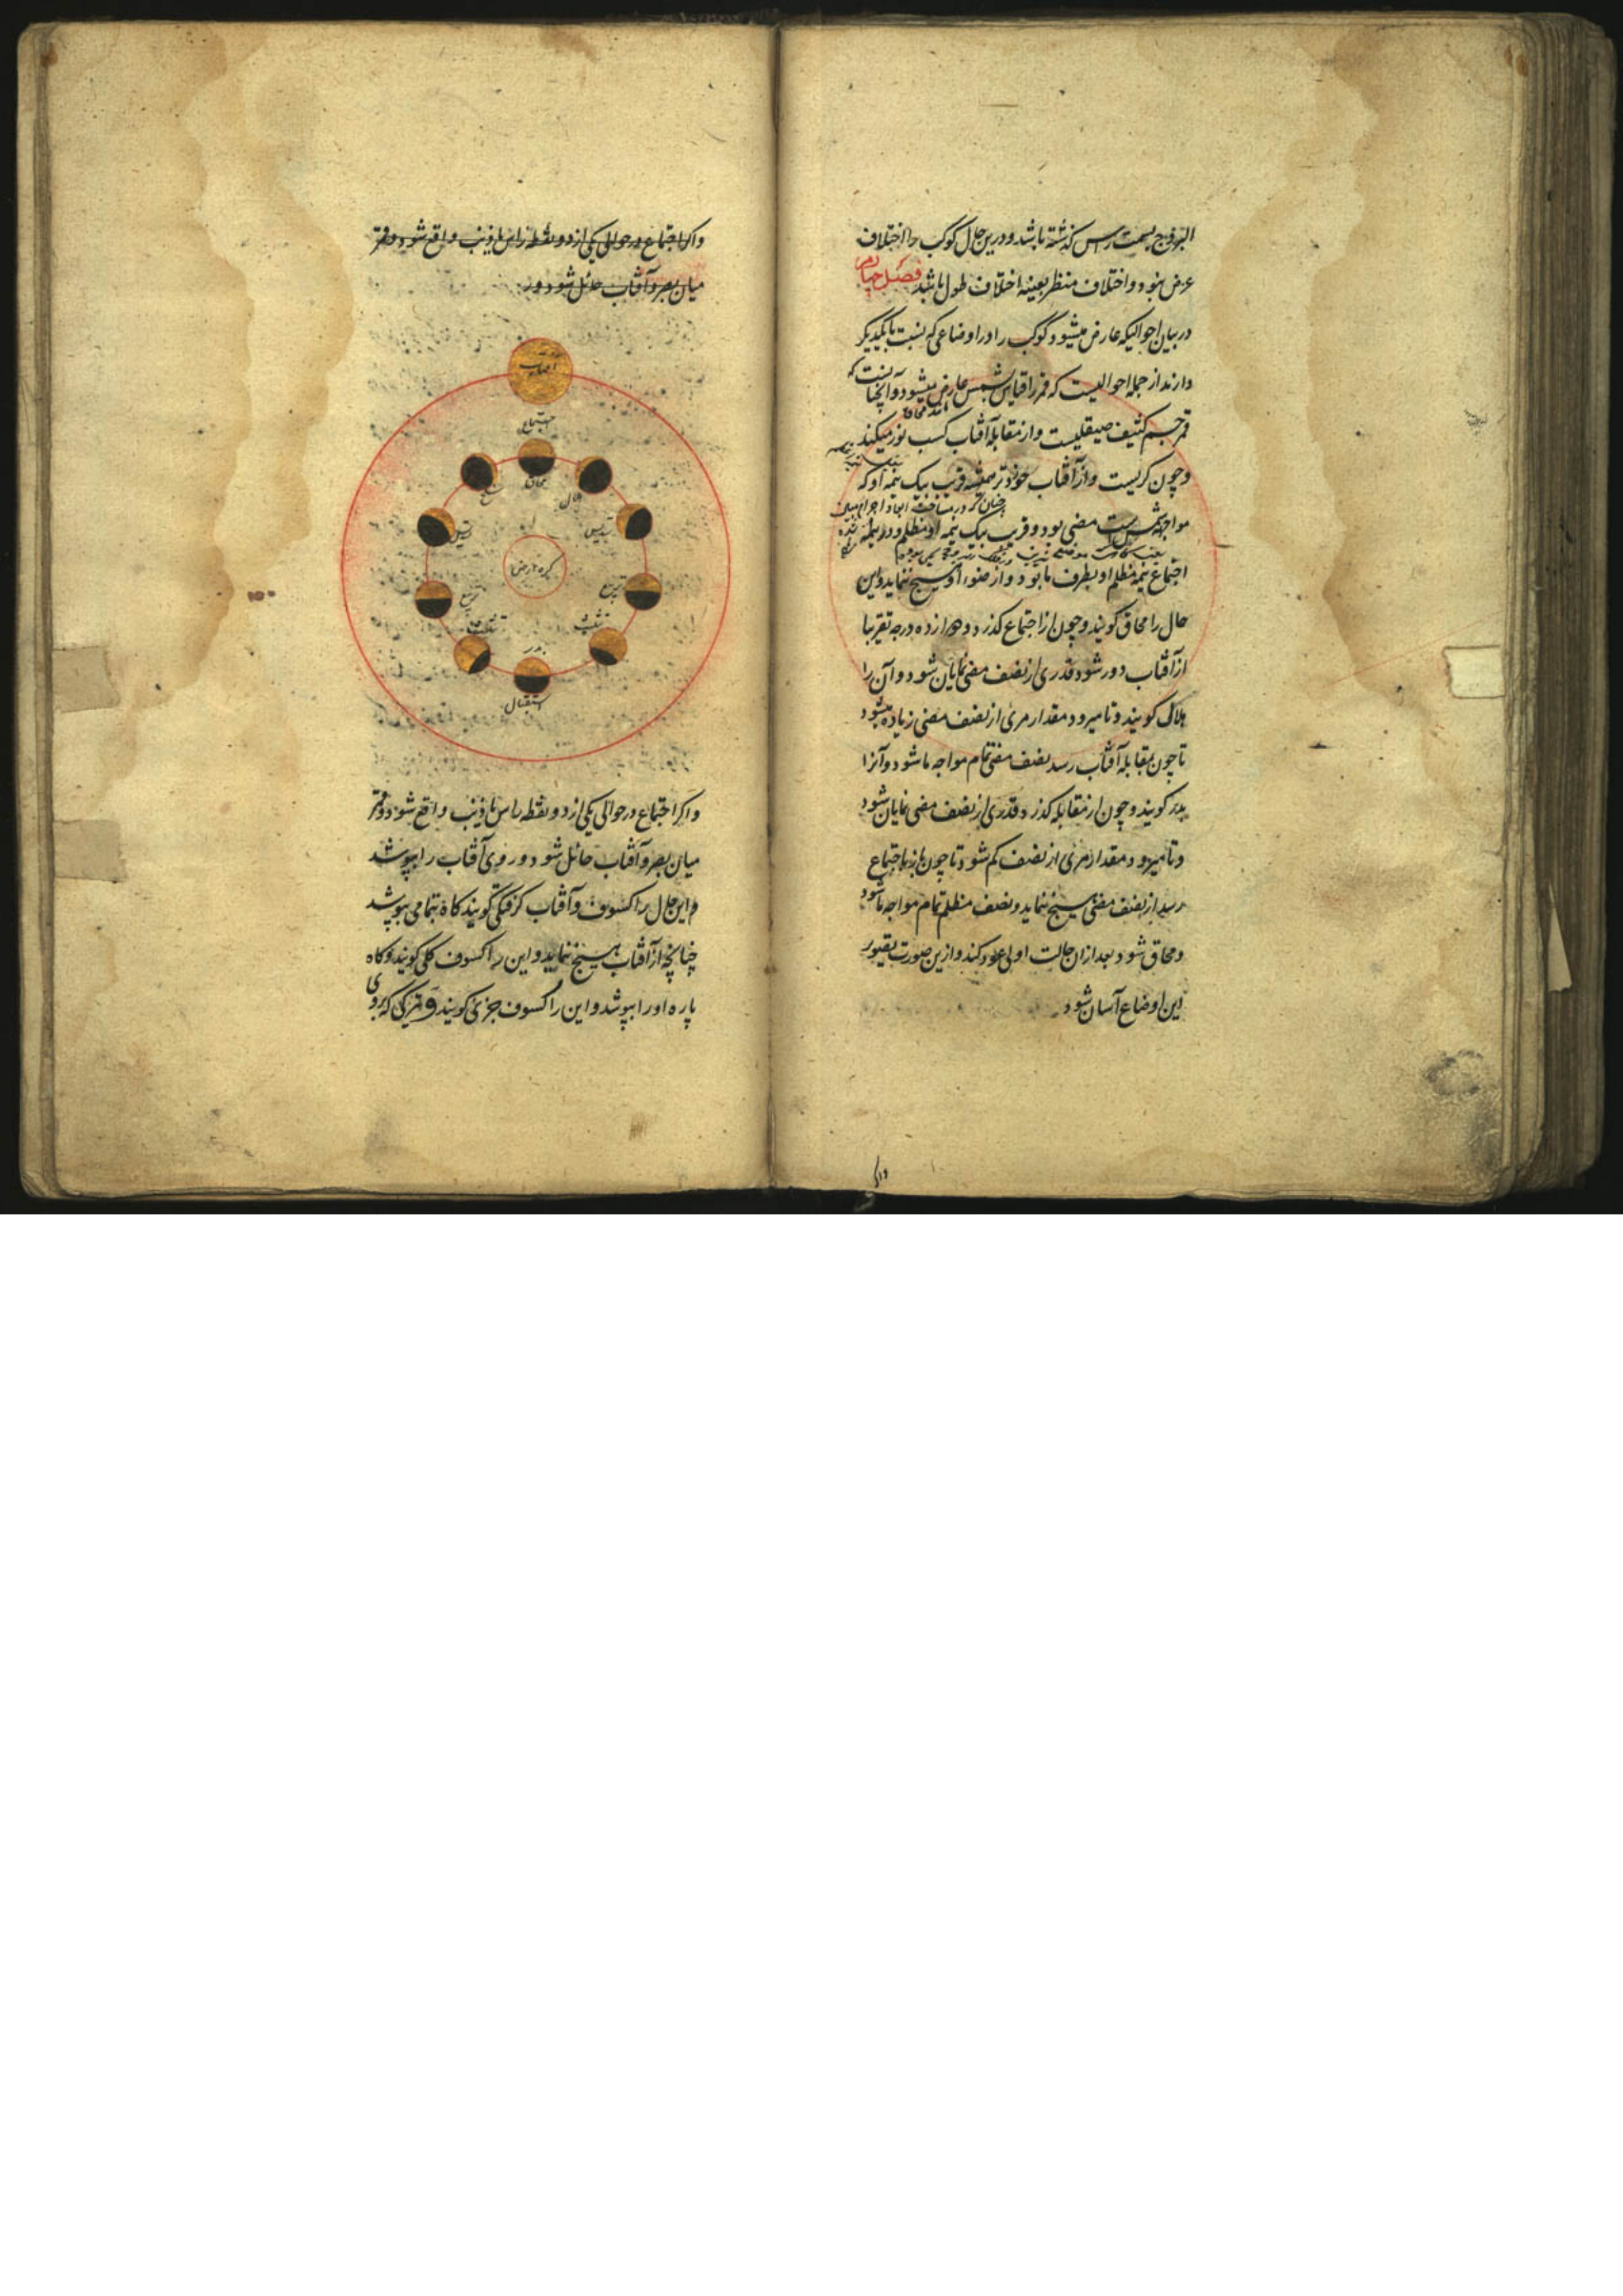 البروج بسمت راس گذشته باشد و درین حال کوکب را اختلاف
عرض نبود و اختلاف منظر بعینه اختلاف طول باشد فصل چهارم
در بیان احوالیکه عارض میشود کوکب را در اوضاعی که نسبت با یکدیگر
دارند از جمله احوالیست که قمر را قیاس شمس عارض میشود و آنچنانست که
قمر جسم کثیف صیقلیست و از مقابله آفتاب کسب نور میکند
و چون کریست و از آفتاب خوردتر همیشه قرب یک نیمه او که
مواجه شمس است مضی بود و قرب یک نیمه او مظلم و در
اجتماع نیمه مظلم او بطرف ما بود و از ضوء او هیچ ننماید و این
حال را محاق گویند و چون از اجتماع گذرد و دوازده درجه تقریبا
از آفتاب دور شود قدری از نصف مضی نمایان شود و آن را
هلال گویند و تا میرود مقدار مرئی از نصف مضی زیاده میشود
تا چون بمقابله آفتاب رسد نصف مضی تمام مواجه ما شود و آنرا
بدر گویند و چون از مقابله گذرد قدری از نصف مضی نمایان شود
و تا میرود مقدار مرئی از نصف کم شود تا چون باز باجتماع
رسد از نصف مضی هیچ ننماید و نصف مظلم تمام مواجه ما شود
و محاق شود بعد ازان حالت اولی عود کند و ازین صورت تصور
این اوضاع آسان شود
و اگر اجتماع در حوالی یکی از دو نقطه راس یا ذنب واقع شود و قمر
میان بصر و آفتاب حائل شود و ر
آفتاب
اجتماع
محاق
هلال
تسدیس
تسدیس
کره ارض
تربیع
تربیع
تثلیث
تثلیث
بدر
استقبال
و اگر اجتماع در حوالی یکی از دو نقطه راس یا ذنب واقع شود و قمر
میان بصر و آفتاب حائل شود و روی آفتاب را بپوشد
و این حال را کسوف و آفتاب گرفتگی گویند گاه بتمامی بپوشد
چنانچه از آفتاب هیچ ننماید و این را کسوف کلی گویند و گاه
پاره او را بپوشد و این را کسوف جزئی گویند و تیرگی که بروی